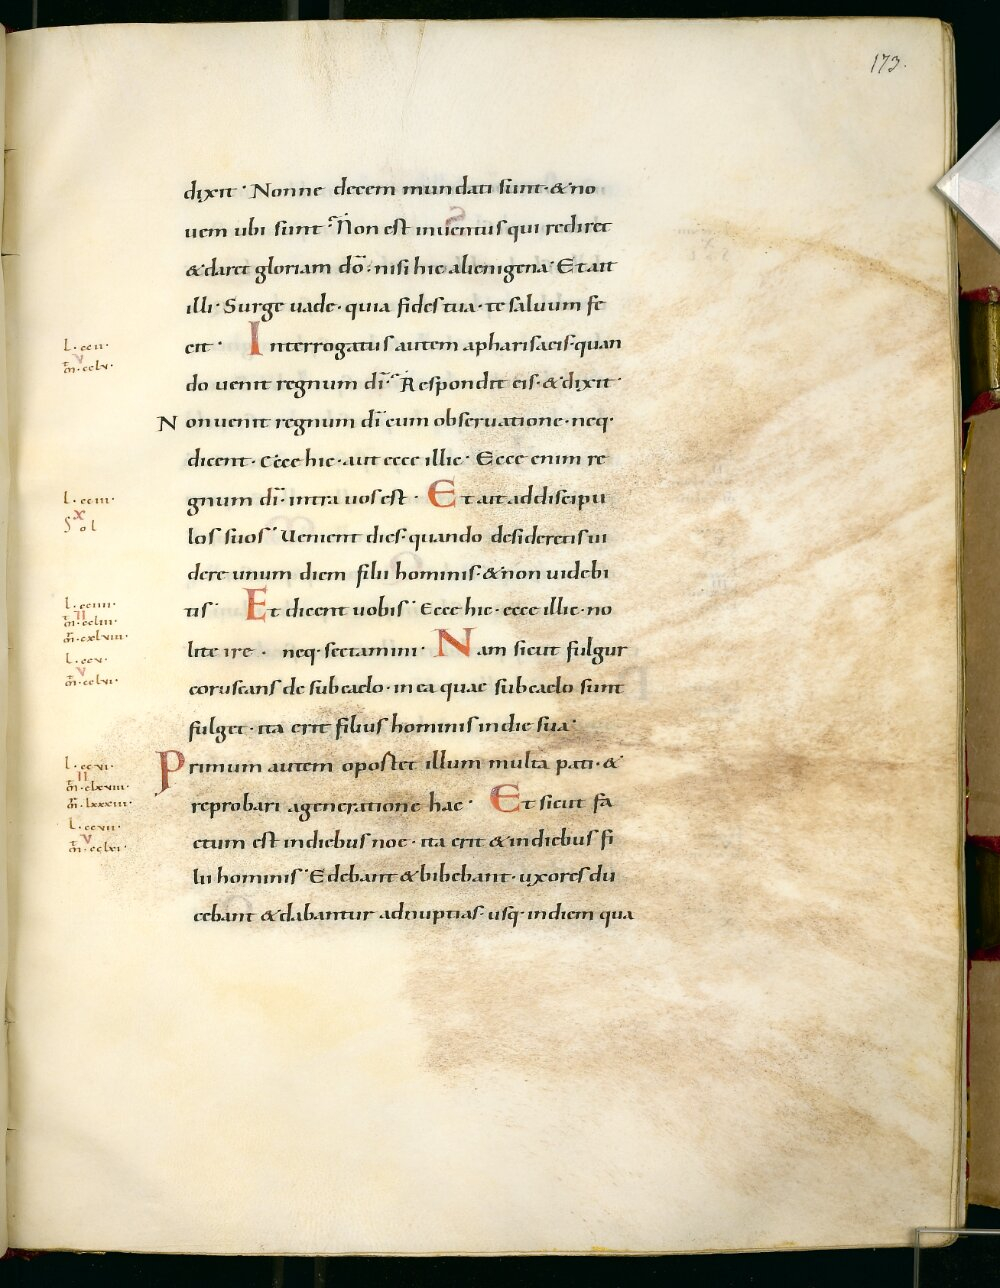 173.
dixit · Nonne decem mundati sunt · & no
uem ubi sunt · Non est inuentus qui rediret
& daret gloriam dō · nisi hic alienigena · Et ait
illi · Surge uade · quia fides tua · te saluum fe
cit · Interrogatus autem apharisaeis · quan
do uenit regnum dī · Respondit eis · & dixit ·
Non uenit regnum dī cum obseruatione · neq·
dicent · Ecce hic · aut ecce illic · Ecce enim re
gnum dī · intra uos est · Et ait addiscipu
los suos · Uenient dies · quando desideretis ui
dere unum diem filii hominis · & non uidebi
tis · Et dicent uobis · Ecce hic · ecce illic · no
lite ire · neq· sectamini · Nam sicut fulgur
coruscans de subcaelo · in ea quae subcaelo sunt
fulget · ita erit filius hominis in die sua ·
Primum autem oportet illum multa pati · &
reprobari ageneratione hac · Et sicut fa
ctum est in diebus noe · ita erit & in diebus fi
lii hominis · Edebant & bibebant · uxores du
cebant & dabantur adnuptias · usq· in diem qua
l · ccii ·
v
m̄ · cclv ·
l · cciii ·
x
Sol
l · cciiii ·
II
m̄ · ccliii ·
m̄ · cxlviii ·
l · ccv ·
v
m̄ · cclvi ·
l · ccvi ·
II
m̄ · clxviii ·
m̄ · lxxxiii ·
l · ccvii ·
v
m̄ · cclxi ·